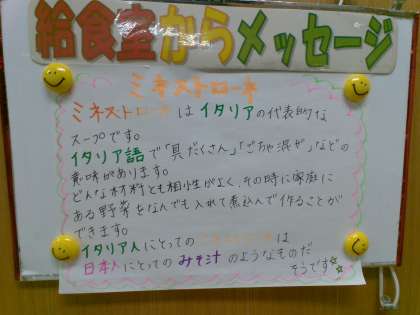 給食室からメッセージ
ミネストローネ
ミネストローネはイタリアの代表的な
スープです。
イタリア語で「具だくさん」「ごちゃ混ぜ」などの
意味があります。
どんな材料とも相性がよく、その時に家庭に
ある野菜をなんでも入れて煮込んで作ることが
できます。
イタリア人にとってのミネストローネは
日本人にとってのみそ汁のようなものだ
そうです